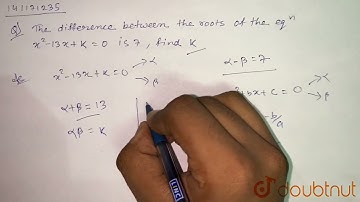 141121235
Q) The difference between the roots of the eqⁿ
x²-13x+k=0 is 7, find k
x²-13x+k=0
→α
→β
α-β=7
α+β=13
αβ=k
+bx+c=0
→α
→β
-b/a
LINC
doubtnut